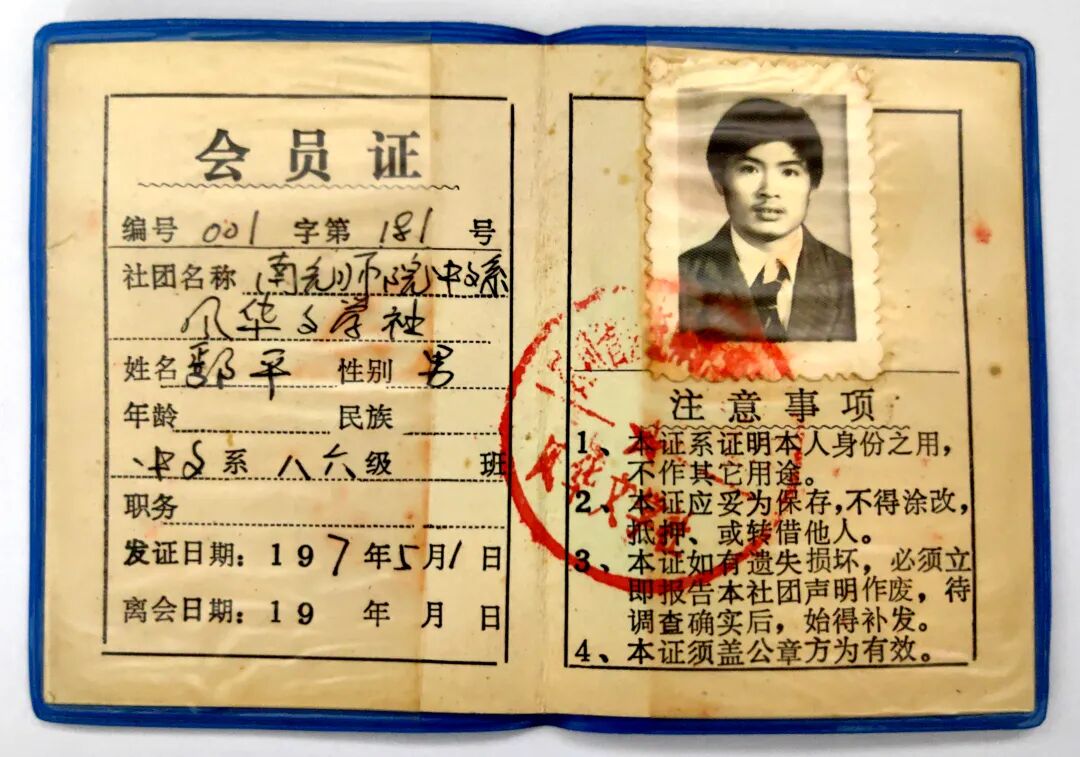 会员证
编号 001 字第 181 号
社团名称 南充师院中文系
风华文学社
姓名 平 性别 男
年龄 民族
中文系 八六级 班
职务
发证日期：197年5月1日
离会日期：19 年 月 日
风华文学社
注意事项
1、本证系证明本人身份之用，
不作其它用途。
2、本证应妥为保存，不得涂改，
抵押、或转借他人。
3、本证如有遗失损坏，必须立
即报告本社团声明作废，待
调查确实后，始得补发。
4、本证须盖公章方为有效。